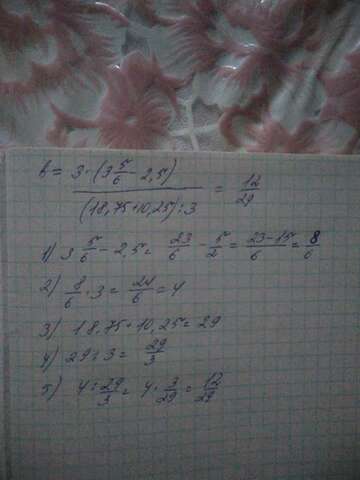 b = 3·(3 5/6 - 2,5) / (18,75+10,25):3 = 12/29
1) 3 5/6 - 2,5 = 23/6 - 5/2 = 23-15/6 = 8/6
2) 8/6 · 3 = 24/6 = 4
3) 18,75+10,25=29
4) 29:3= 29/3
5) 4:29/3= 4·3/29=12/29